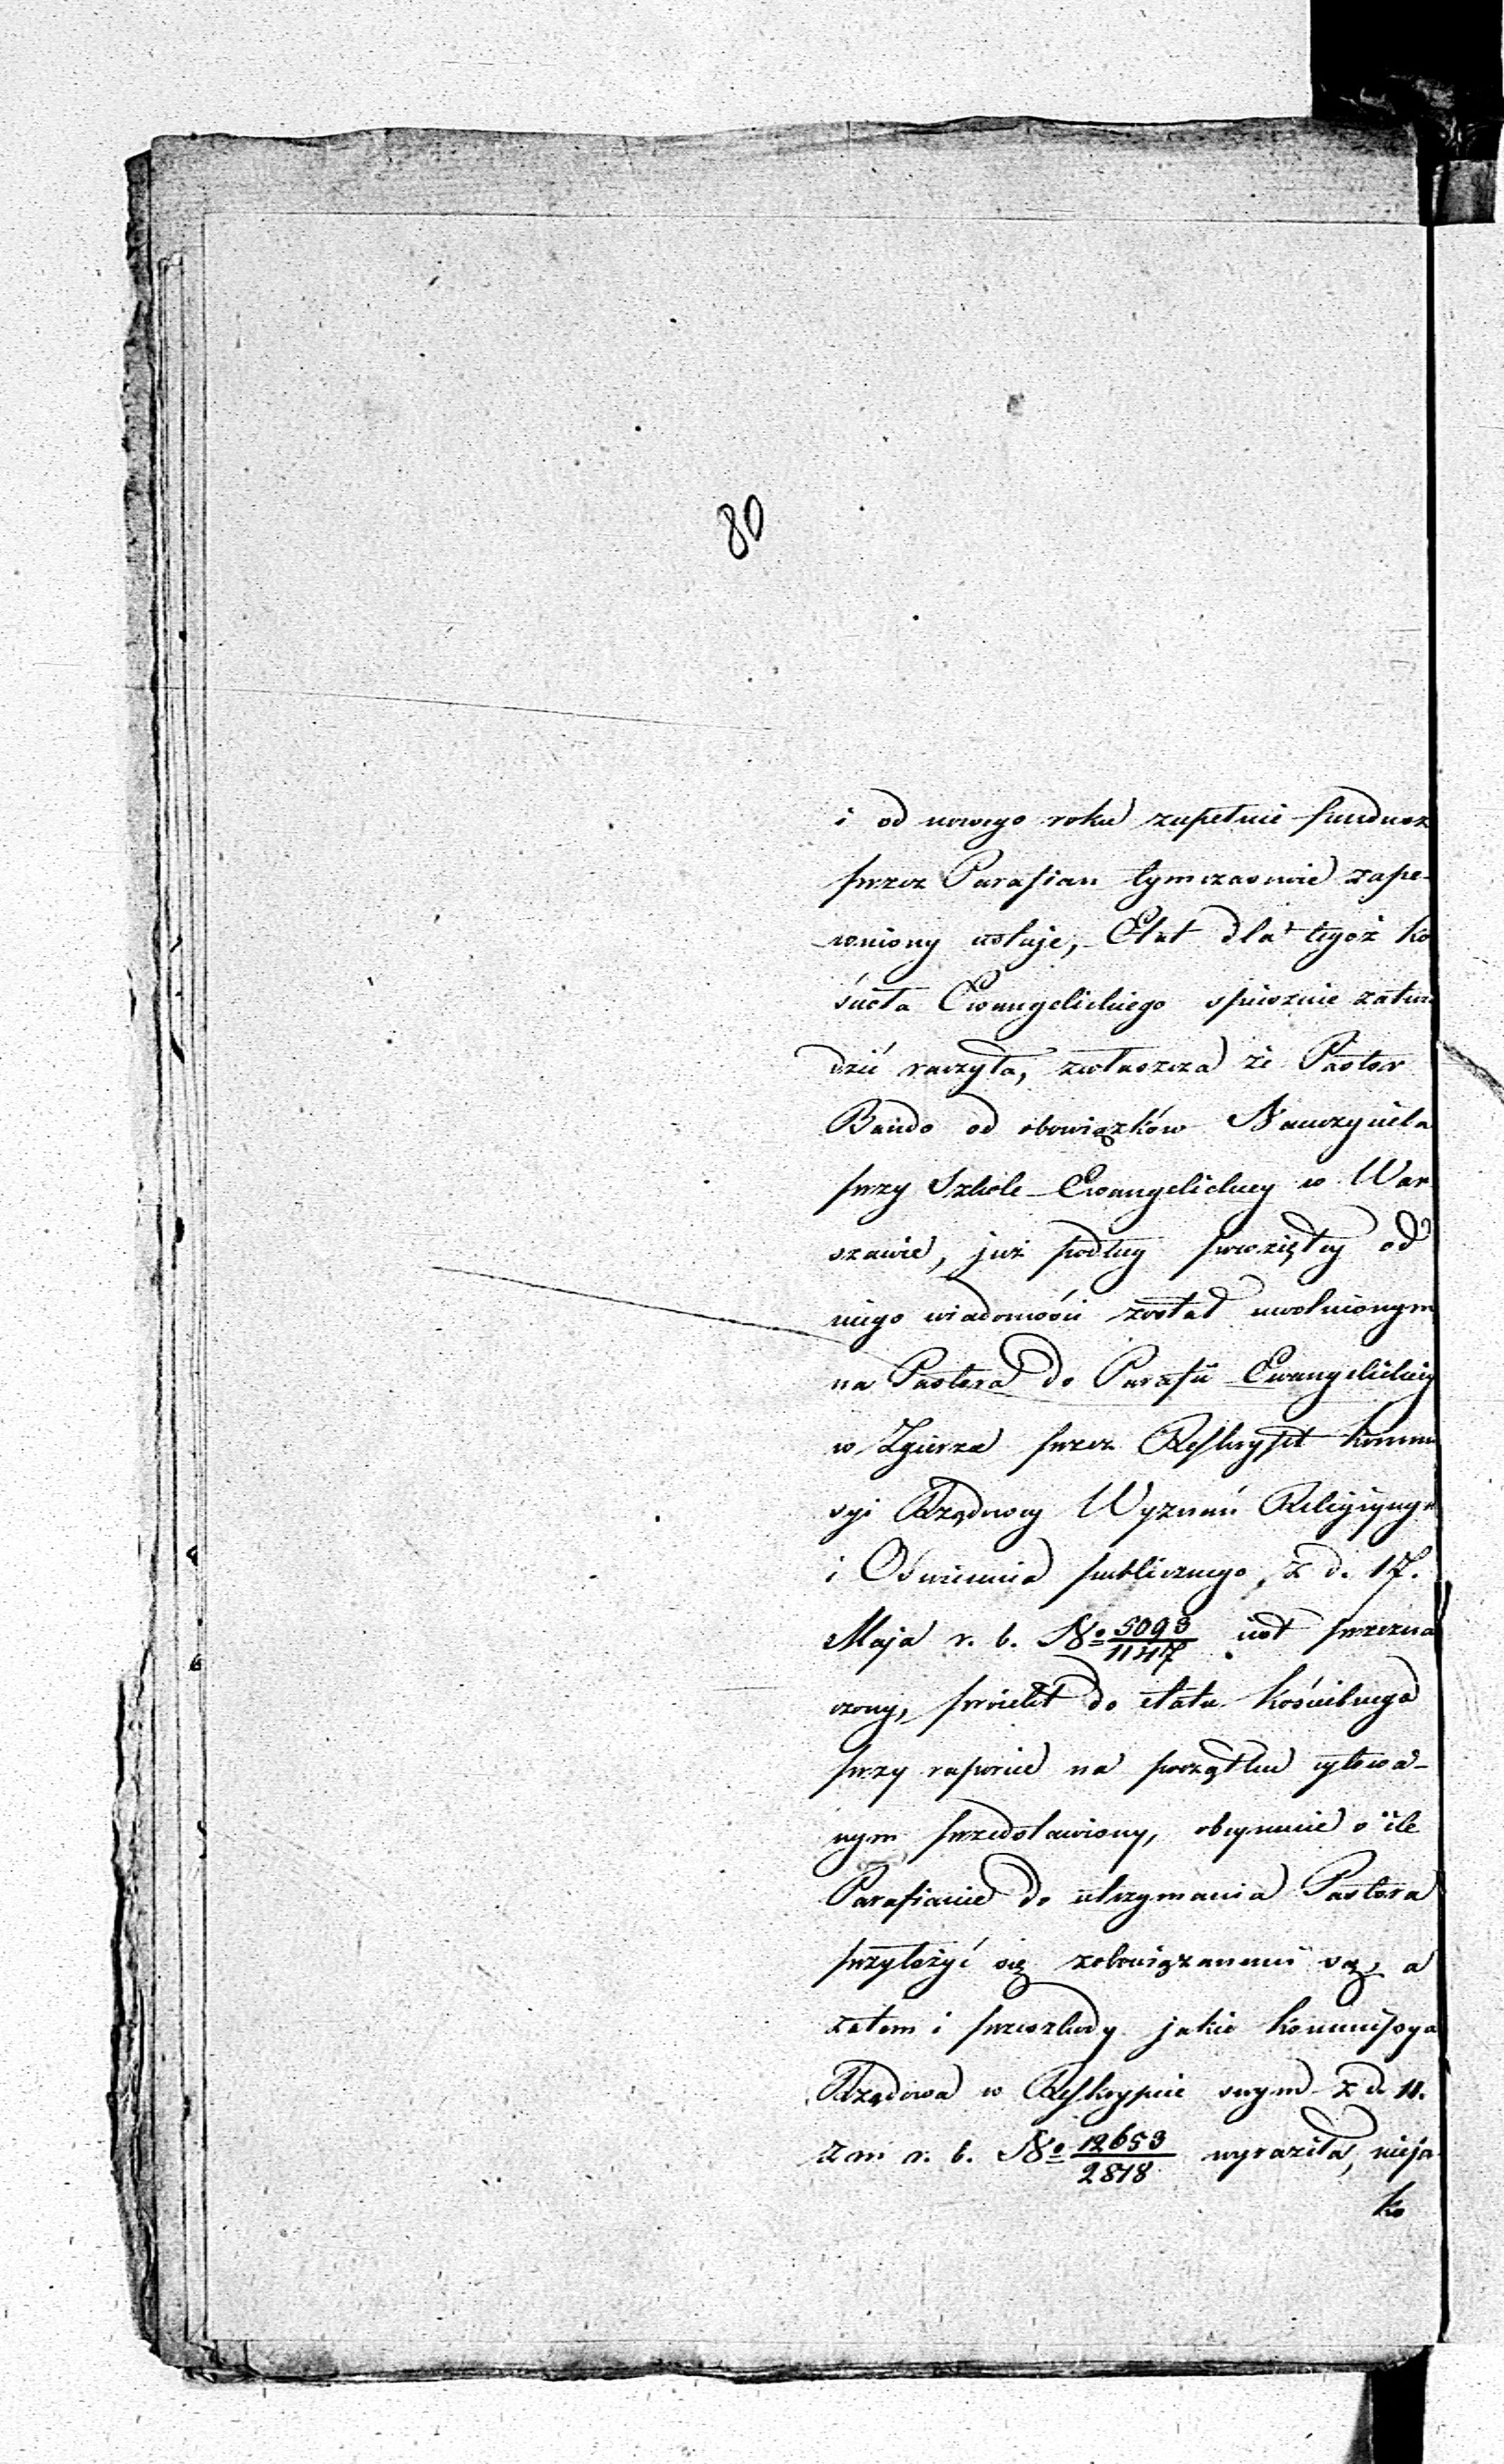 80
i od nowego roku zupełnie fundusz
przez Parafian tymczasowie zape-
wniony istnieje, Etat dla tegoż ko
ścioła Ewangelickiego spiesznie zatwier
dzić raczyła, zwłaszcza że Pastor
Bando od obowiązków Nauczyciela
przy Szkole Ewangelickiey w War
szawie, już podług powziętey od
niego wiadomości został uwolnionym
na Pastora do Parafii Ewangelickiey
w Zgierzu przez Reskrypt Kommi
syi Rządowey Wyznań Religiynych
i Oświecenia publicznego z d. 17.
Maja r. b. No 5093/1147 iest przezna
czony, proiekt do etatu Kościelnego
przy raporcie na początku cytowa-
nym przedstawiony, obeymuie o ile
Parafianie do utrzymania Pastora
przyłożyć się zobowiązanemi są, a
zatem i przeszkody jakie Kommissya
Rządowa w Reskrypcie swym z d. 11.
z m r. b. No 12653/2818 wyraziła, nieja
ko